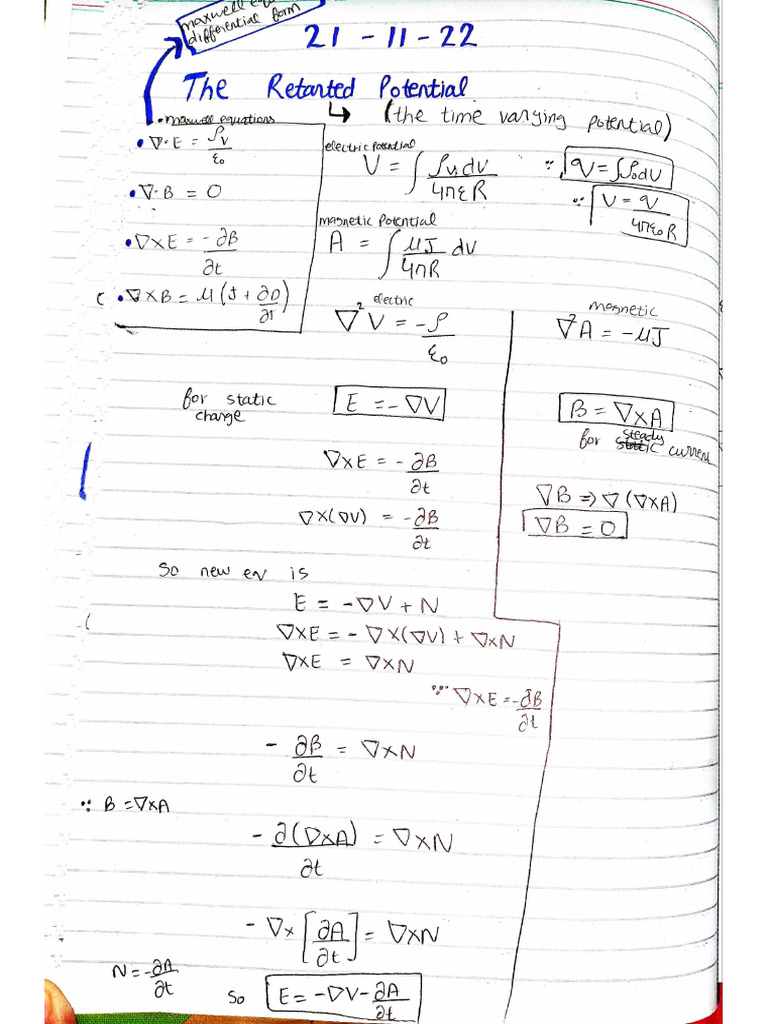 maxwell equ
differential form
21 - 11 - 22
The Retarted Potential
↳ (the time varying potential)
• maxwell equations
• ∇·E = ρv/ε0
• ∇·B = 0
• ∇×E = -∂B/∂t
• ∇×B = μ(J + ∂D/∂t)
electric potential
V = ∫ ρv dv / 4πεR
∵ q = ∫ρv dv
∵ V = q / 4πε0R
magnetic Potential
A = ∫ μJ / 4πR dv
electric
∇²V = -ρ/ε0
magnetic
∇²A = -μJ
for static charge
E = -∇V
B = ∇×A
for steady current
∇×E = -∂B/∂t
∇×(∇V) = -∂B/∂t
∇B ⇒ ∇(∇×A)
∇B = 0
So new eq is
E = -∇V + N
∇×E = -∇×(∇V) + ∇×N
∇×E = ∇×N
∵ ∇×E = -∂B/∂t
-∂B/∂t = ∇×N
∵ B = ∇×A
-∂(∇×A)/∂t = ∇×N
-∇×[∂A/∂t] = ∇×N
N = -∂A/∂t
So E = -∇V - ∂A/∂t